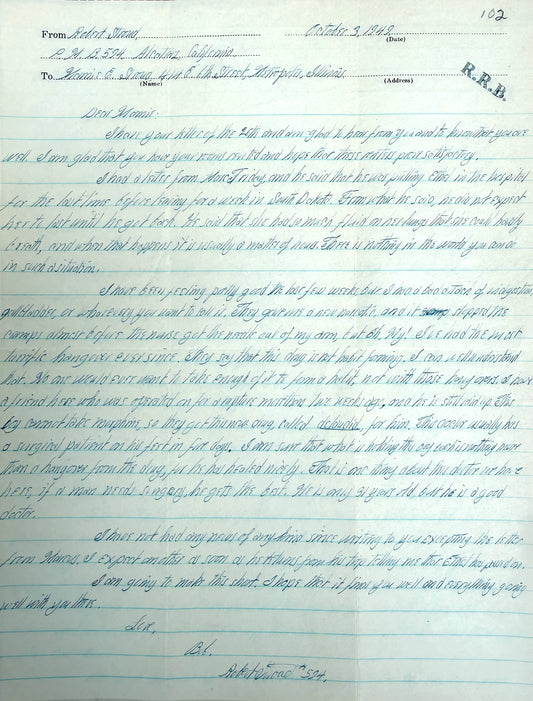 102
From Robert Stroud, October 3, 1949.
(Date)
P.M.B. 594, Alcatraz, California
To Mamie E. Stroud, 414 E. 6th Street, Metropolis, Illinois
(Name) (Address)
R.R.B.
Dear Mamie:
I have your letter of the 25th and am glad to hear from you and to know that you are
well. I am glad that you have your rooms rented and hope that these renters prove satisfactory.
I had a letter from Friday, and he said that he was putting Ethel in the hospital
for the last time before leaving for a week in South Dakota. From what he said, he did not expect
her to last until he got back. He said that she had so much fluid on her lungs that she could barely
breath, and when that happens it is usually a matter of hours. There is nothing in the world you can do
in such a situation.
I have been feeling pretty good the last few weeks but I had a bad attack of indigestion,
gallbladder, or whatever you want to call it. They gave me a new narcotic, and it stopped the
cramps almost before the nurse got the needle out of my arm, but Oh, My! I've had the most
terrific hangover ever since. They say that this drug is not habit forming. I can well understand
that. No one would ever want to take enough of it to form a habit, not with those hang overs. I have
a friend here who was operated on for a rupture more than two weeks ago, and he is still laid up. This
boy cannot take morphine, so they got this new drug, called for him. This doctor usually has
a surgical patient on his feet in four days. I am sure that what is holding this boy back is nothing more
than a hangover from the drug, for he has healed nicely. That is one thing about the doctor we have
here, if a man needs surgery, he gets the best. He is only 31 years old but he is a good
doctor.
I have not had any news of any kind since writing to you excepting the letter
from Marcus. I expect another as soon as he returns from his trip telling me that Ethel has passed on.
I am going to make this short. I hope that it finds you well and everything going
well with you there.
Love,
Bob.
Robert Stroud #594.